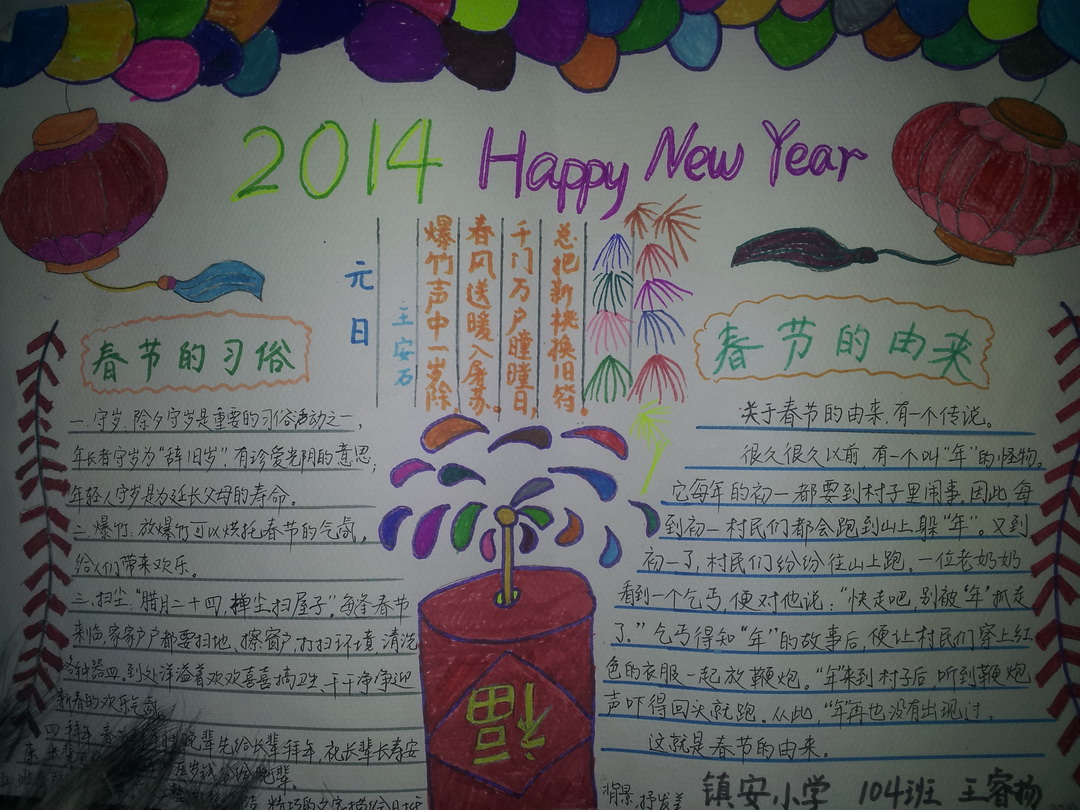 2014 Happy New Year
元日
王安石
爆竹声中一岁除,
春风送暖入屠苏。
千门万户瞳瞳日,
总把新桃换旧符。
春节的习俗
一.守岁:除夕守岁是重要的习俗活动之一,
年长者守岁为“辞旧岁”,有珍爱光阴的意思;
年轻人守岁是为延长父母的寿命。
二.爆竹:放爆竹可以烘托春节的气氛,
给人们带来欢乐。
三.扫尘:“腊月二十四,掸尘扫房子”.每逢春节
来临,家家户户都要扫地、擦窗户,打扫环境,清洗
各种器皿.到处洋溢着欢欢喜喜搞卫生、干干净净迎
新春的欢乐气氛
四.拜年:春节
晚辈先给长辈拜年,祝长辈长寿安
压岁钱
给晚辈.
春节的由来
关于春节的由来,有一个传说。
很久很久以前,有一个叫“年”的怪物。
它每年的初一都要到村子里闹事.因此每
到初一村民们都会跑到山上躲“年”。又到
初一了,村民们纷纷往山上跑。一位老奶奶
看到一个乞丐,便对他说:“快走吧,别被“年”抓走
了.”乞丐得知“年”的故事后,便让村民们穿上红
色的衣服一起放鞭炮。“年”来到村子后,听到鞭炮
声吓得回头就跑.从此,“年”再也没有出现过.
这就是春节的由来.
福
镇安小学 104班 王睿扬